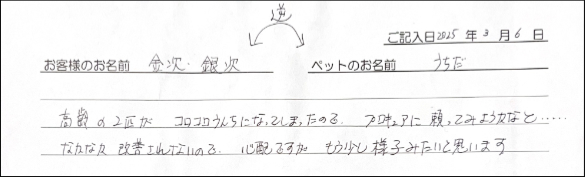 逆
ご記入日2025年3月6日
お客様のお名前 金次・銀次 ペットのお名前 うちだ
高齢の2匹が コロコロうんちになってしまったので、プロキュアに頼ってみようかなと……
なかなか改善されてないので、心配ですが もう少し様子みたいと思います